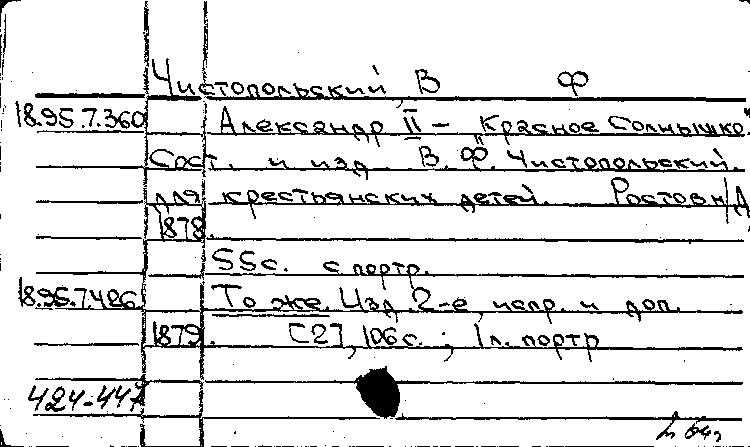 Чистопольский, В Ф
18.95.7.360 Александр II – "Красное Солнышко."
Сост. и изд В. Ф. Чистопольский.
для крестьянских детей. Ростов н/Д
1878.
55с. с портр.
18.95.7.426. То же. Изд. 2-е, испр. и доп.
1879. [2], 106 с. ; 1л. портр
424-447